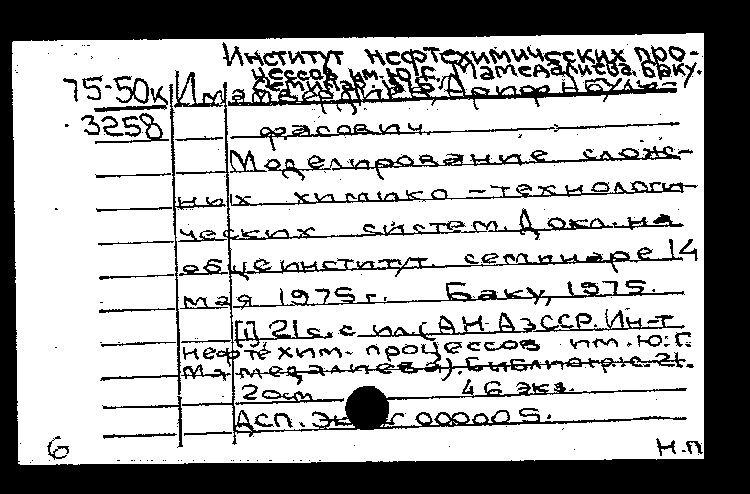 Институт нефтехимических про-
цессов им. Ю.Г. Мамедалиева. Баку.
Семинар
75-50к Имамвердиев, Ариф Абуль-
3258 фасович.
Моделирование слож-
ных химико-технологи-
ческих систем. Докл. на
общеинститут. семинаре 14
мая 1975 г. Баку, 1975.
[1], 21 с. с ил. (АН АзССР. Ин-т
нефтехим. процессов им. Ю.Г.
Мамедалиева). Библиогр. с. 21.
20 см 46 экз.
Асп. Г 000005.
6 Н.П